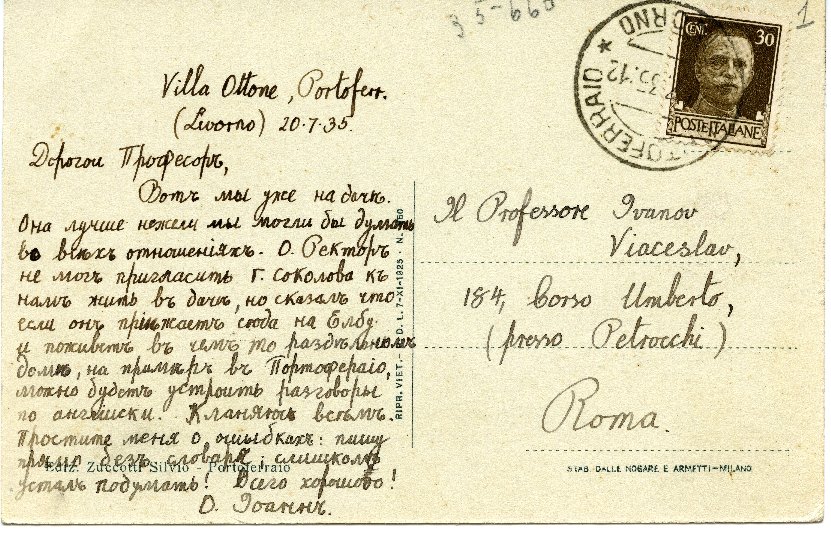 Villa Ottone, Portoferr.
(Livorno) 20.7.35.
Дорогои Професоръ,
Вотъ мы уже на дачѣ.
Она лучше нежели мы могли бы думать
во всѣхъ отношеніяхъ. О. Ректоръ
не могъ пригласить Г. Соколова къ
намъ жить въ дачѣ, но сказалъ что
если онъ пріѣжаетъ сюда на Елбу
и поживетъ въ чемъ то раздѣльномъ
домѣ, на примѣръ въ Портофераіо,
можно будетъ устроить разговоры
по англіиски. Кланяюсь всѣмъ.
Простите меня о ошыбкахъ: пишу
прямо безъ словаря; слишкомъ
усталъ подумать! Всего хорошово!
О. Іоаннъ.
Ediz. Zuccotti Silvio - Portoferraio
RIPR. VIET. - D. L. 7-XI-1925 - N.
PORTOFERRAIO * LIVORNO
35.12
CENT. 30
POSTE ITALIANE
1
Il Professore Ivanov
Viaceslav,
184, Corso Umberto,
(presso Petrocchi)
Roma.
STAB. DALLE NOGARE E ARMETTI-MILANO